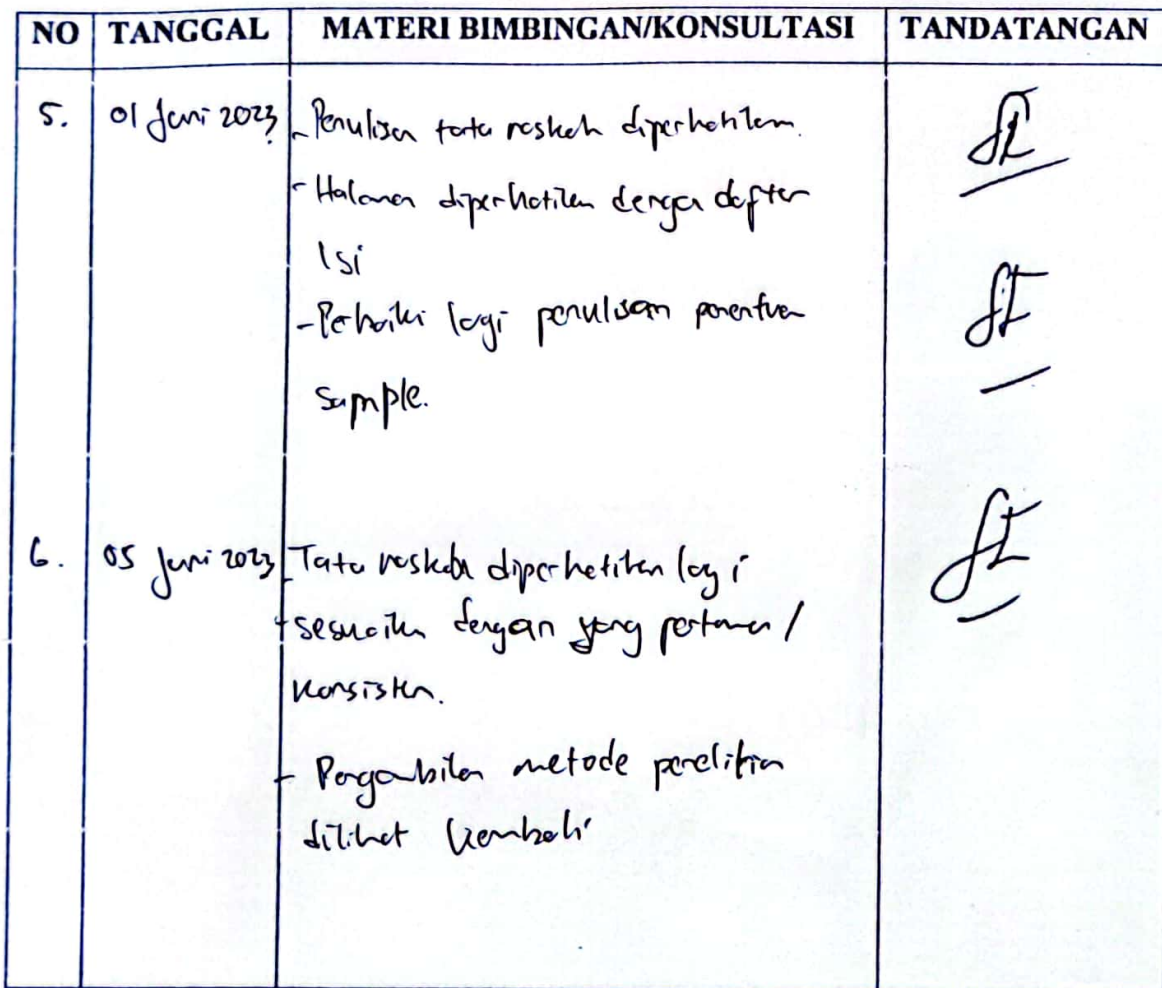 NO TANGGAL MATERI BIMBINGAN/KONSULTASI TANDATANGAN
5. 01 Juni 2023 - Penulisan tata naskah diperhatikan.
- Halaman diperhatikan dengan daftar
Isi
- Perbaiki lagi penulisan penentuan
sample.
6. 05 Juni 2023 - Tata naskah diperhatikan lagi
sesuaikan dengan yang pertama /
konsisten.
- Pengambilan metode penelitian
dilihat kembali